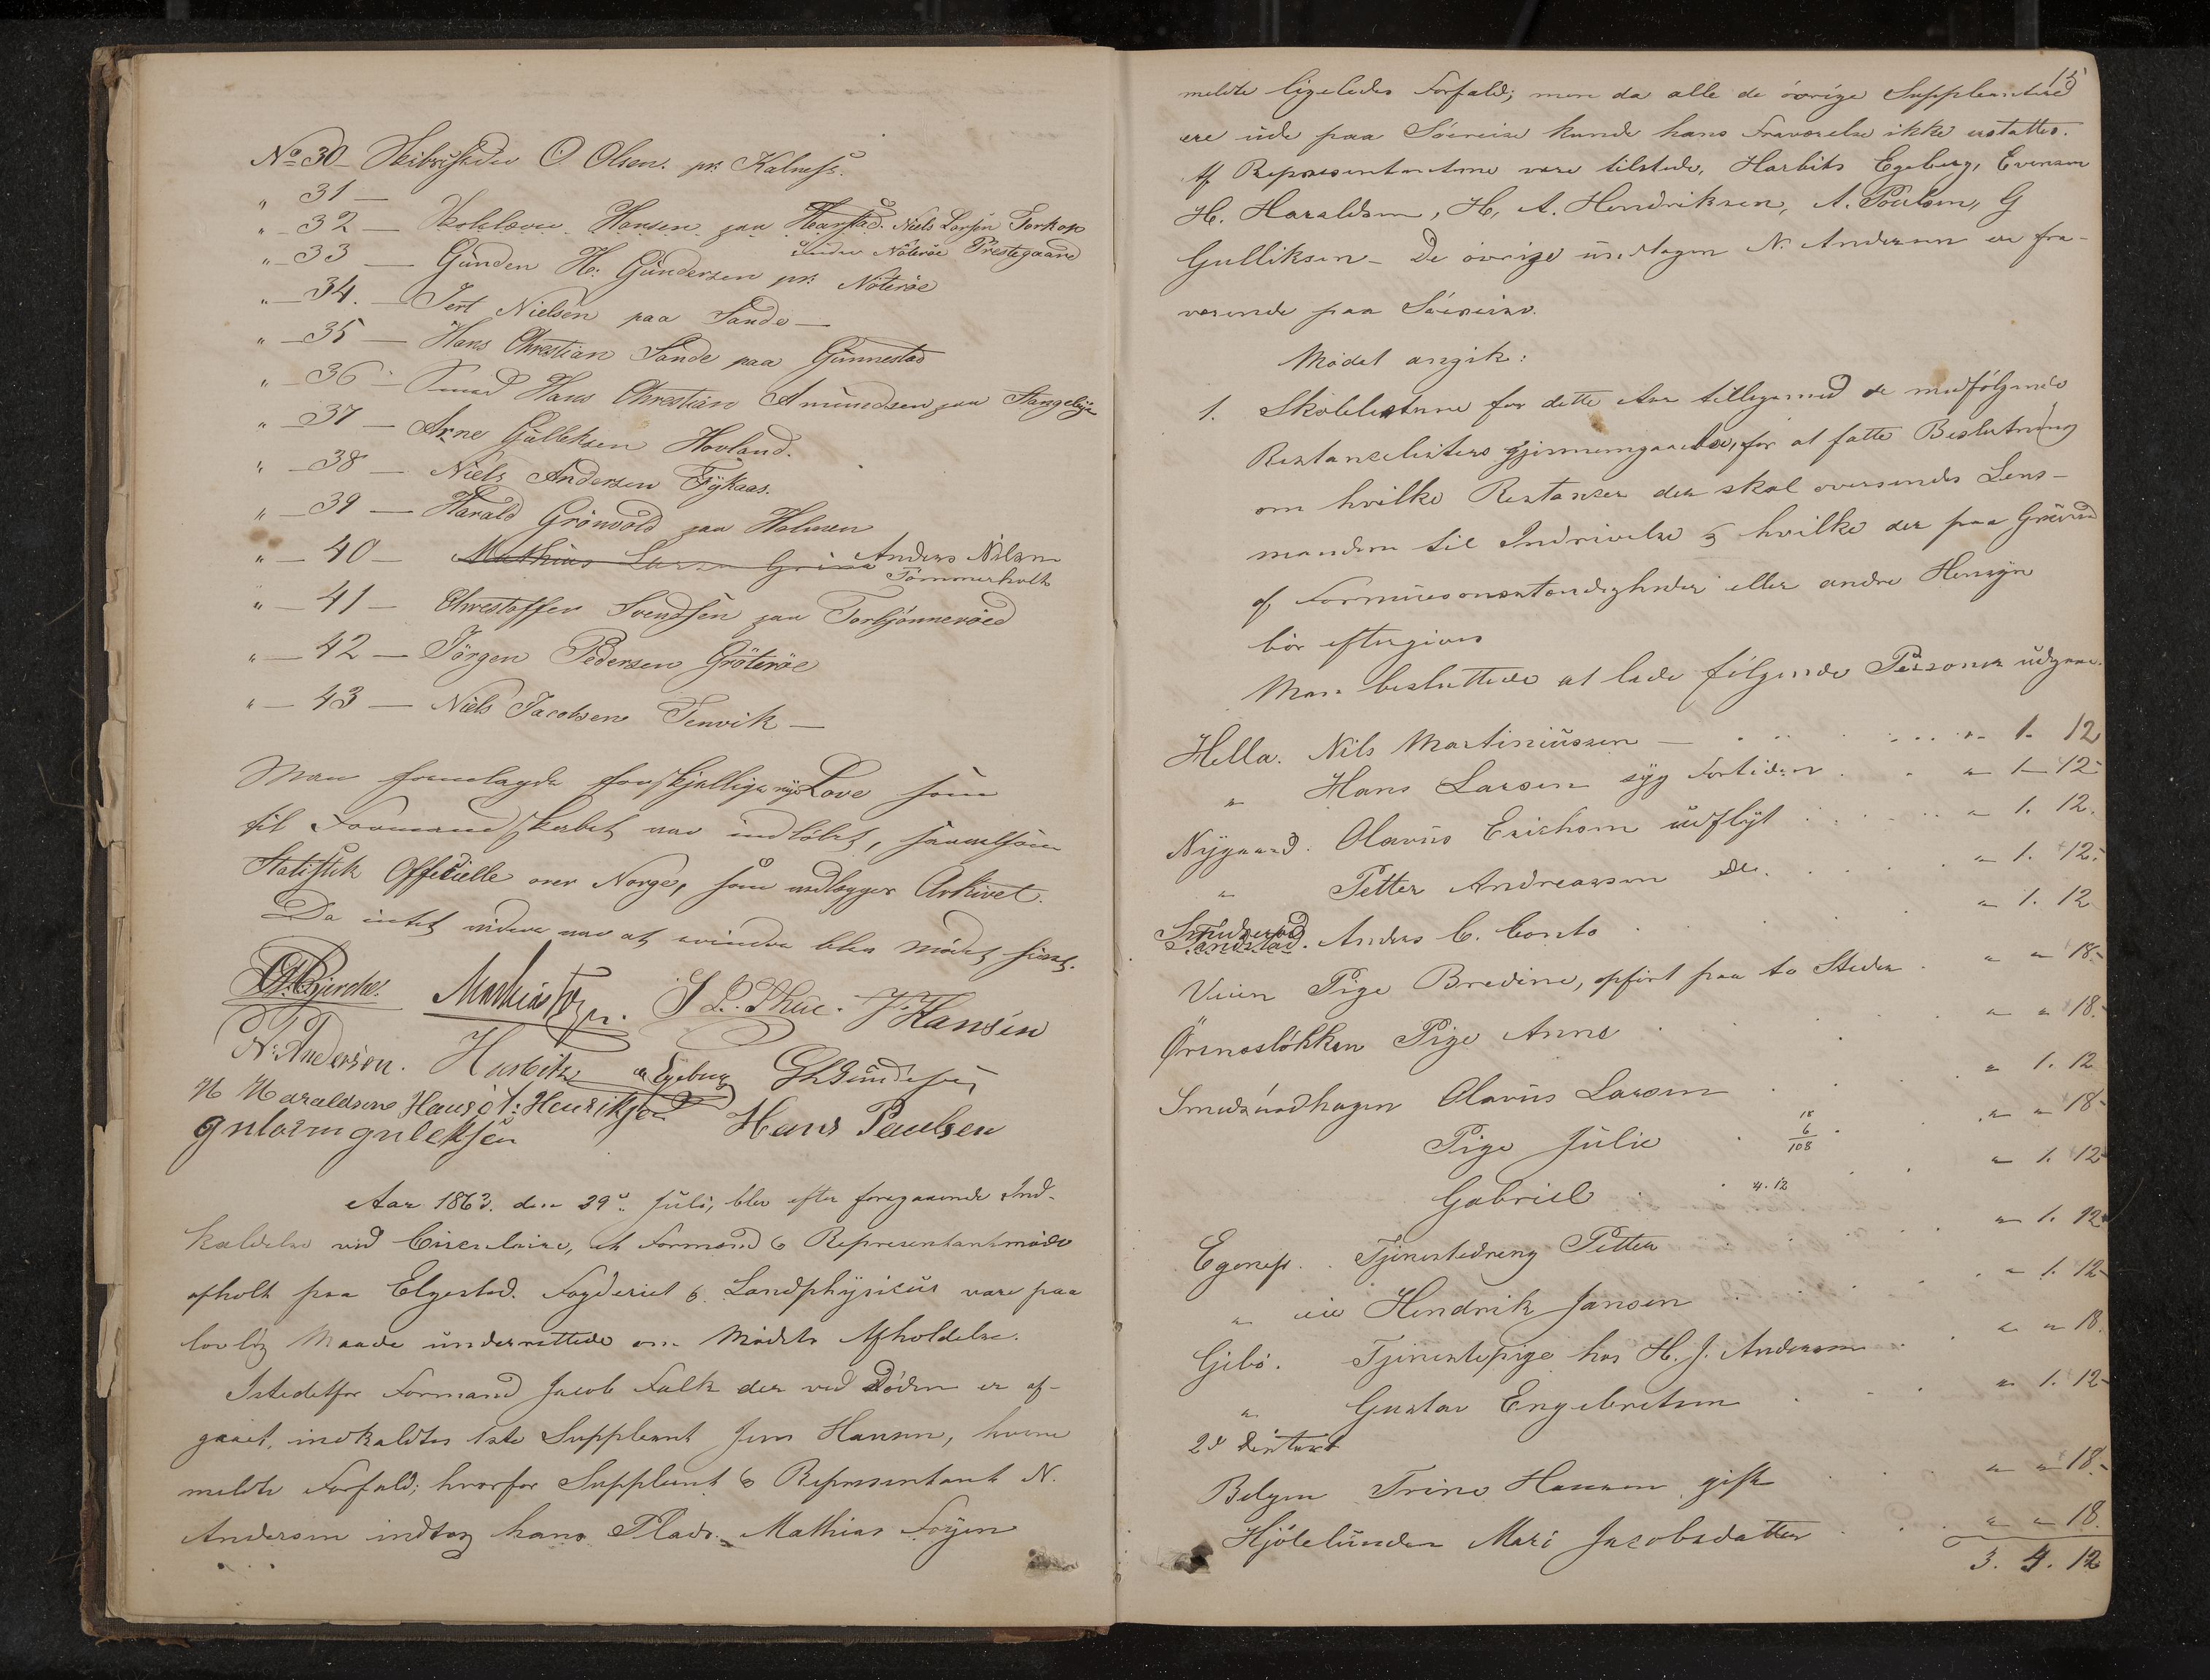 No 30 - Skibsreder O Olsen. pr. Kalness.
" 31 —
" - 32 — Hansen paa Haarstad. Niels Larsen Torkop
under Nöteröe Prestegaard
" - 33 — Gunden H. Gundersen pr. Nöteröe
" - 34. — Iert Nielsen paa Sande —
" - 35 — Hans Chrestian Sande paa Gunnestad
" - 36 — Smed Hans Chrestian Amundsen paa Stangeby
" - 37 — Arne Gulleksen Hovland.
" - 38 — Niels Andersen Fykaas.
" - 39 — Harald Grönvold paa Holmen
" - 40 — Mathias Larsen Anders Nilsen
Tömmerholt
" - 41 — Chrestoffer Svendsen paa Torbjönneröed
" - 42 — Jörgen Pedersen Gröteröe
" - 43 — Niels Jacobsen Tenvik —
Man foretagde forskjellige nye Love som
til Formandskabet var indlöbet, saavelsom
Statistik Officielle over Norge, som vedlægges Arkivet.
Da intet videre var at erindre blev mödet hævet.
O. Bjercke. Mathias Föyen. J. Hansen
N. Anderson. Harbitz Egeberg G H Gundersen
H Haraldsen Hans A: Henriksen Hans Paulsen
gulbrn gulleksen
Aar 1863. den 29de Juli, blev efter foregaaende Ind-
kaldelse ved Circulaire, et Formand & Representantmöde
afholt paa Elgestad. Fogderiet & Landphysicus vare paa
lovlig Maade underrettede om Mödets Afholdelse.
Istedetfor Formand Jacob Falk der ved Döden er af-
gaaet, indkaldtes 1ste Suppleant Jens Hansen, hvem
meldte Forfald; hvorfor Suppleant & Representant N.
Andersen indtog hans Plads. Mathias Föyen
15
meldte ligeledes Forfald; men da alle de övrige Suppleanter
ere ude paa Söereise kunde hans Fraværelse ikke erstattes.
Af Representanterne vare tilstede, Harbits Egeberg, Evensen
H. Haraldsen, H, A. Hendriksen, A. Poulsen, G
Gulliksen - De övrige undtagen N. Andersen ere fra-
værende paa Söereise.
Mödet angik:
1. Skolelisterne for dette Aar tilligemed de medfölgende
Restancelisters gjennemgaaelse, for at fatte Beslutning
om hvilke Restanser der skal oversendes Lens-
manden til Indrivelse & hvilke der paa Grund
af Formuesomstændigheder eller andre Hensyn
bör eftergives
Man besluttede at lade fölgende Personer udgaae.
Hella. Nils Martiniussen — " 1. 12
" Hans Larsen syg Fortiden " 1 - 12 -
Nygaard. Olavus Erichsen udflyt " 1. 12.
" Petter Andreassen do. " 1. 12 -
Smidsröd
Sandstad. Anders C. Conto " 1. 12
Veien Pige Bredine, opfört paa to Steder " " 18 -
Örsnæslökken Pige Anne " " 18 -
Smidsrödhagen Olavus Larsen " 1. 12
Pige Julie 18 6 108 " " 18 -
Gabriel 4. 12 " 1. 12 -
Egeness. Tjenestedreng Petter " 1. 12
" eie Hendrik Jansen " 1. 12 -
Gibö. Tjenestepige hos H. J. Andersen " " 18.
" Gustav Engebretsen " 1. 12 -
2d Distrikt
Bolgen Trine Hansen gift " " 18 -
Hjölelunden Mari Jacobsdatter " " 18.
3. 4. 12